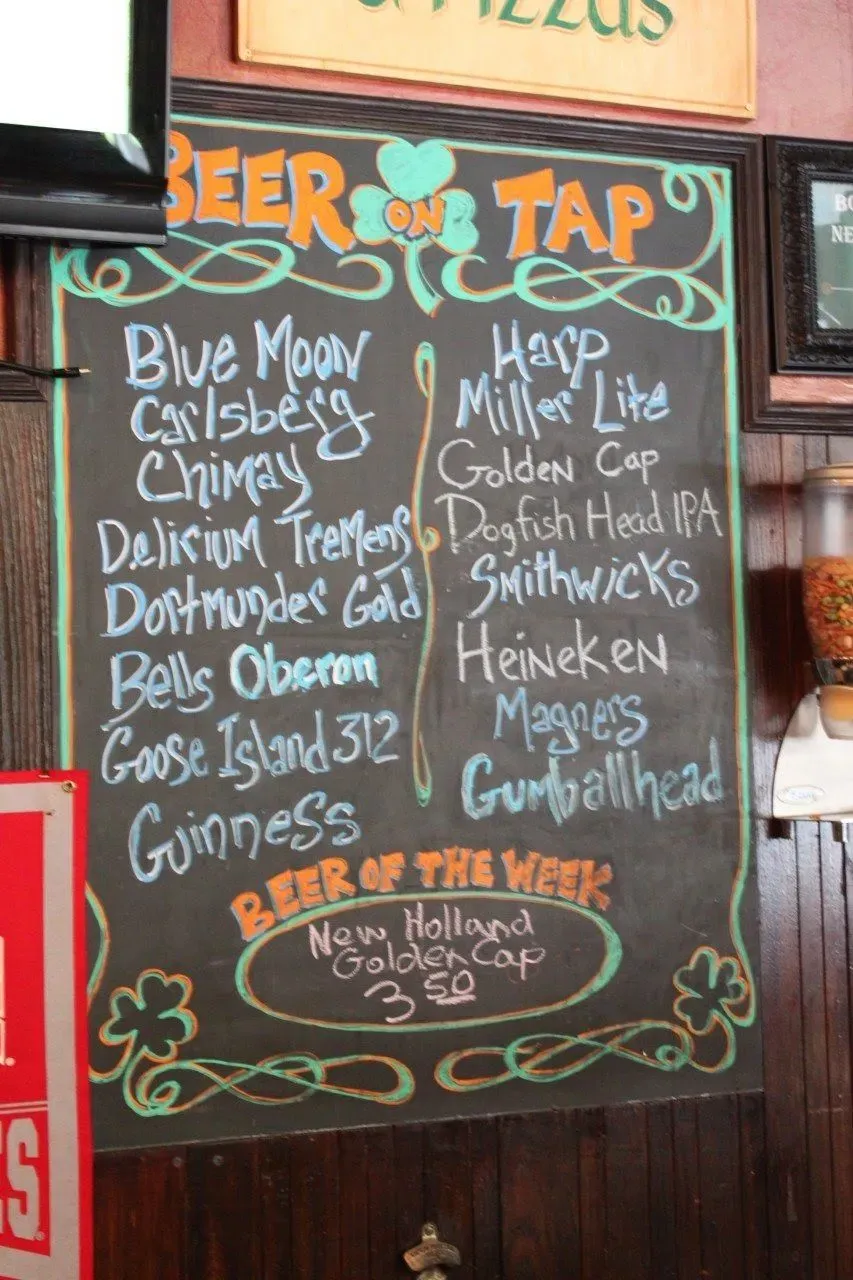 & Pizzas
BEER ON TAP
Blue Moon
Carlsberg
Chimay
Delirium Tremens
Dortmunder Gold
Bells Oberon
Goose Island 312
Guinness
Harp
Miller Lite
Golden Cap
Dogfish Head IPA
Smithwicks
Heineken
Magners
Gumballhead
BEER OF THE WEEK
New Holland
Golden Cap
3 50
BO
NE